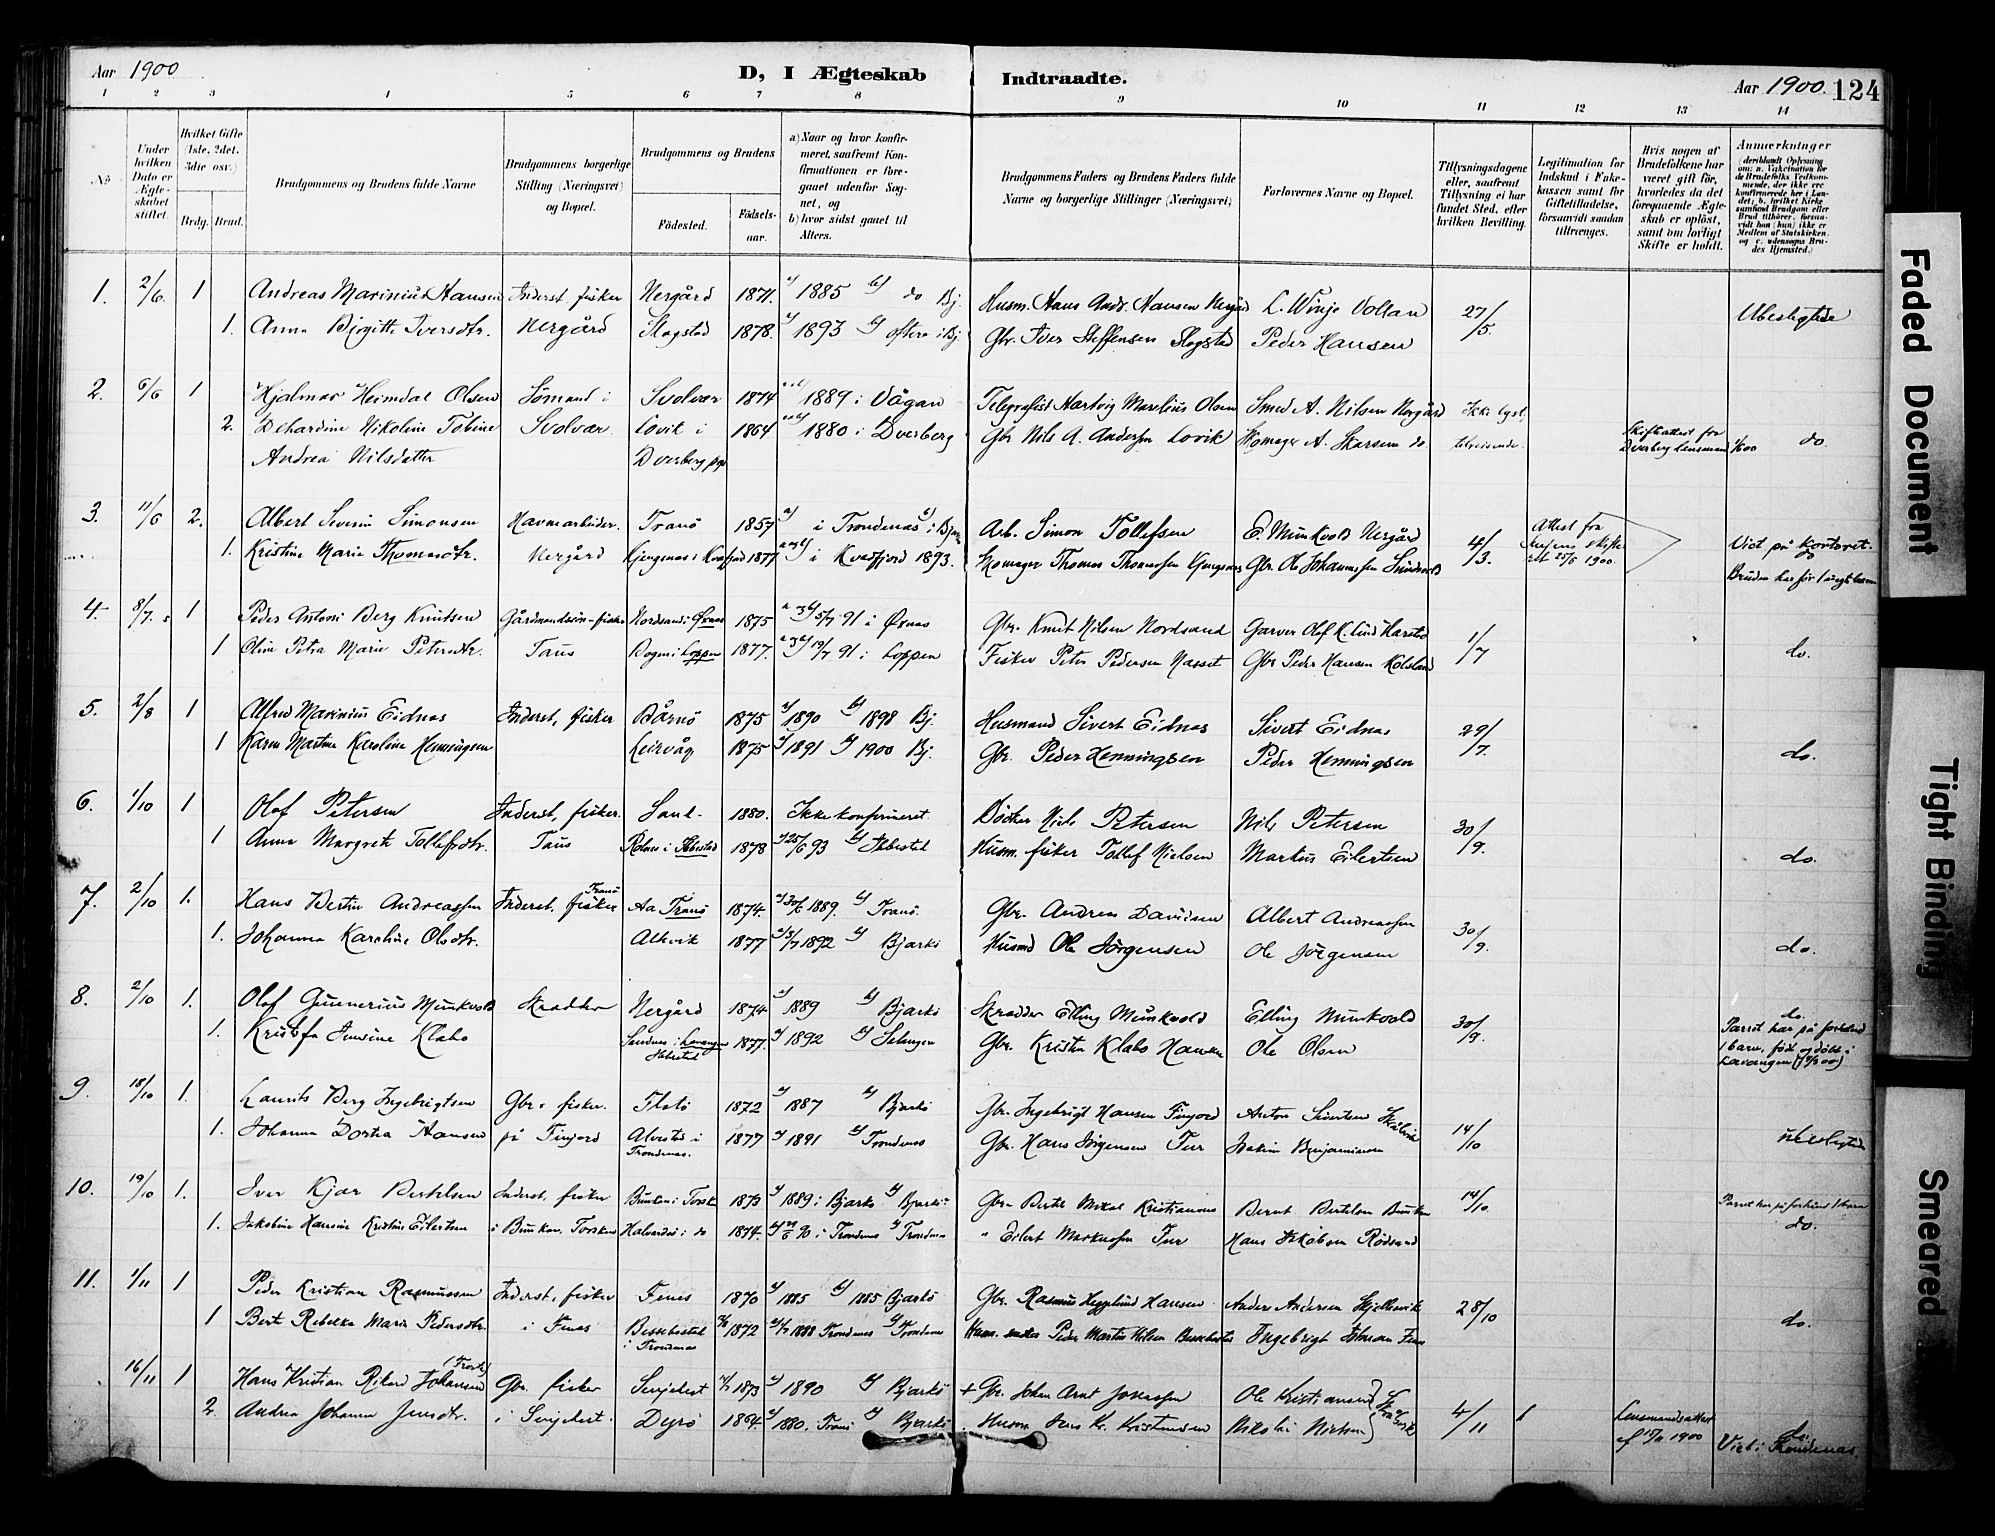 Aar 1900
D, I Ægteskab Indtraadte.
Aar 1900. 124
1 2 3 4 5 6 7 8 9 10 11 12 13 14
No
Under hvilken Dato er Ægteskabet stiftet.
Hvilket Gifte (1ste, 2det, 3die osv.)
Brdg. Brud.
Brudgommens og Brudens fulde Navne
Brudgommens borgerlige Stilling (Næringsvei) og Bopæl.
Brudgommens og Brudens
Fødested.
Fødselsaar.
a) Naar og hvor konfirmeret, saafremt Konfirmationen er foregaaet udenfor Sognet, og
b) hvor sidst gaaet til Alters.
Brudgommens Faders og Brudens Faders fulde Navne og borgerlige Stillinger (Næringsvei)
Forlovernes Navne og Bopæl.
Tillysningsdagene eller, saafremt Tillysning ei har fundet Sted, efter hvilken Bevilling.
Legitimation for Indskud i Enkekassen samt for Giftetilladelse, forsaavidt saadan tiltrænges.
Hvis nogen af Brudefolkene har været gift før, hvorledes da det foregaaende Ægteskab er opløst, samt om lovligt Skifte er holdt.
Anmærkninger
1. 2/6 1 Andreas Marinius Hansen Inderst fisker Nergård 1871. a) 1885 b) do Bj. Husm. Hans Andr. Hansen Nergård L. Winje Vollan 27/5 Ubeslegtede
1. Anna Birgitte Iversdtr. Nergård Slagstad 1878. a) 1893 b) oftere i Bj. Gbr. Iver Steffensen Slagstad Peder Hansen
2. 6/6 1 Hjalmar Heimdal Olsen Sømand i Svolvær 1874 1889 i Vågan Telegrafist Hartvig Marelius Olsen Smed A. Nilsen Nergård Ikke lyst,
2. Dehardine Nikoline Tobine Svolvær Lovik i 1864 1880 i Dverberg Gbr Nils A. Andersen Lovik Skomager A. Skarsem do. tilreisende. Skifteattest fra Dverberg lensmand do.
Andrea Nilsdatter Dverberg
3. 11/6 2. Albert Severin Simonsen Havnearbeider. Tranö 1857 a) i Trondenes Arb. Simon Tollefsen E. Munkvold Nergård 4/3. Attest fra skifteret 25/5 1900. Viet på kontoret.
1. Kristine Marie Thomasdtr. Nergård i Kvæfjord 1871 i Kvæfjord 1893. Skomager Thomas Thomassen Gbr. Ole Johannessen do
Bruden har før 1 uægte barn
4. 8/7. 1 Peder Antoni Berg Knutsen Gårdmandssøn-fisker Nordsand i Øxnes 1875 5/7 91 i Øxnes Gbr. Knut Nilsen Nordsand Garver Olaf K. Lind Harstad 1/7
1 Oline Petra Marie Petersdtr. Taus i Loppen 1877. 19/7 91 i Loppen Fisker Peter Pedersen Hasset Gbr Peder Hansen Kolsland do.
5. 2/8 1 Alfred Marinius Eidnes Inderst, fisker Bårnö 1875 a) 1890 b) 1898 Bj. Husmand Sivert Eidnes Sivert Eidnes 29/7.
1 Karen Martine Karoline Henningsen Leirvåg 1875 a) 1891 b) 1900 Bj. Gbr. Peder Henningsen Peder Henningsen do.
6. 1/10 1 Olaf Petersen Inderst, fisker. Sand. 1880. Ikke konfirmeret Nils Petersen Nils Petersen 30/9.
1 Anna Margrete Tollefsdtr. Taus Rolnes i Ibbestad 1878 25/6 93 b) Ibbestad Husm. fisker Tollef Nielsen Markus Eilertsen do.
7. 2/10 1. Hans Bertin Andreassen Inderst, fisker Tranö Aa Tranö 1874. 30/6 1889. b) Tranö. Gbr. Andreas Davidsen Albert Andreassen 30/9.
1. Johanna Karoline Olsdtr. Alkvik 1877 3/7 1892 b) Bjarkö Husmd Ole Jörgensen Ole Jörgensen do.
8. 2/10 1. Olaf Gunnerius Munkvold Skrædder Nergård 1874 a) 1889 b) Bjarkö Skrædder Elling Munkvold Elling Munkvold 30/9. do.
1. Kristofa Jensine Klæbo Sandnes i Lavangen Ibbestad 1877. a) 1892 b) Salangen Gbr. Kristen Klæbo Ole Olsen Parret har på forhånd 1 barn, født og døbt i Lavangen
9. 18/10 1. Laurits Berg Ingebrigtsen Gbr. fisker. Flatö 1872 a) 1887 b) Bjarkö Gbr. Ingebrigt Hansen Finjord Anton Sivertsen Skålvik 14/10
1. Johanna Dortea Hansen på Finjord Alvestad i Trondenes. 1877 a) 1891 b) Trondenes Gbr. Hans Jörgensen Fur Joakim Benjaminsen ubeslegtede
10. 19/10 1. Iver Kjær Bertelsen Inderst, fisker Bunken i Torsken 1873 a) 1889 i Bjarkö b) Bjarkö Gbr. Bertel Mikal Kristiansen Bernt Bertelsen Bunken 14/10 Parret har på forhånd 1 barn
1. Jakobine Hansine Kristine Eilertsen i Bunken, Torsken Halvardsö i do 1874. 90 i Trondenes b) Trondenes " Eilert Markussen Fur Hans Jakobsen Rödsand do.
11. 1/11 1 Peder Kristian Rasmussen Inderst, fisker Fenes 1870 a) 1885 b) 1885 Bjarkö Gbr. Rasmus Heggelund Hansen Anders Andersen Skjellesvik 28/10
1 Berte Rebekka Marie Pedersdtr. i Fenes Bessebostad i Trondenes 1872 1888 Trondenes b) Trondenes Peder Martin Nilsen Bessebostad Ingebrigt Johnsen Fenes do.
16/11 1 Hans Kristian Rikard Johansen Gbr. fisker Senjehest 1873 a) 1890 b) Bjarkö + Gbr. Johan Arnt Jonassen Ole Kristiansen 4/11 1
2. Andrea Johanna Jensdtr. i Senjehest. Dyrö 1864. a) 1880. Tranö b) Bjarkö. Husm. Jens Kr. Kristensen Nikolai Nielsen Lensmandsattest af 15/11 1900 do. Viet i Trondenes.
Faded Document
Tight Binding
Smeared